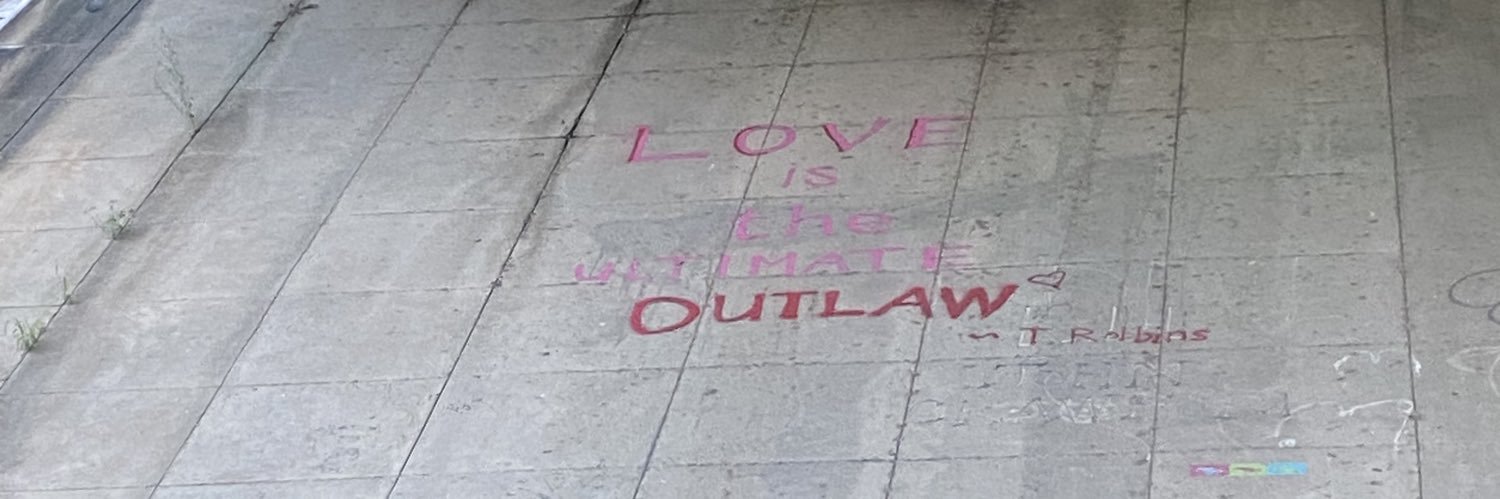 LOVE
is
the
ULTIMATE
OUTLAW
~ T Robbins